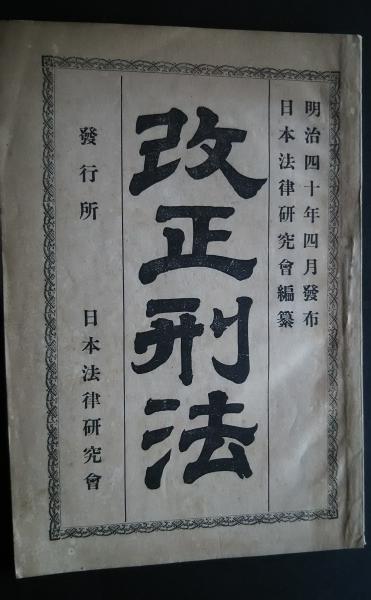 明治四十年四月發布
日本法律研究會編纂
改正刑法
發行所
日本法律研究會